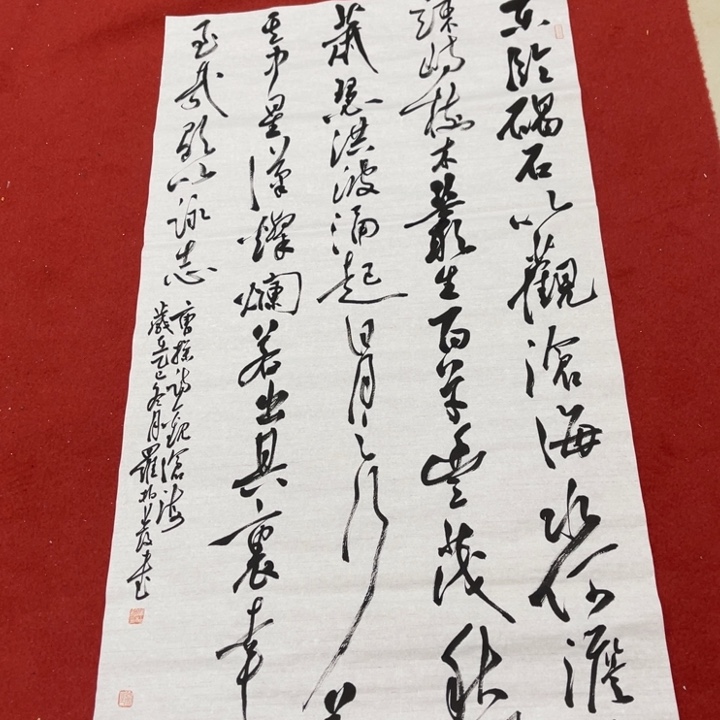 東臨碣石以觀滄海水何澹
竦峙樹木叢生百草豐茂秋
蕭瑟洪波涌起日月之行若
其中星漢燦爛若出其裏幸
至哉歌以詠志
曹操詩觀滄海
歲在乙巳冬月羅書